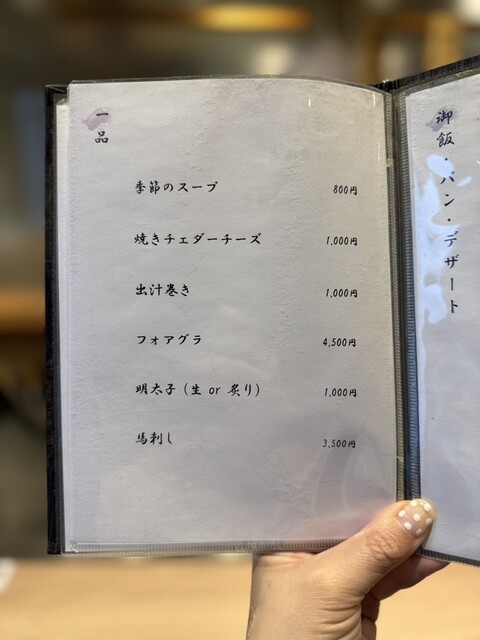 一品
季節のスープ 800円
焼きチェダーチーズ 1,000円
出汁巻き 1,000円
フォアグラ 4,500円
明太子（生 or 炙り） 1,000円
馬刺し 3,500円
御飯・パン・デザート